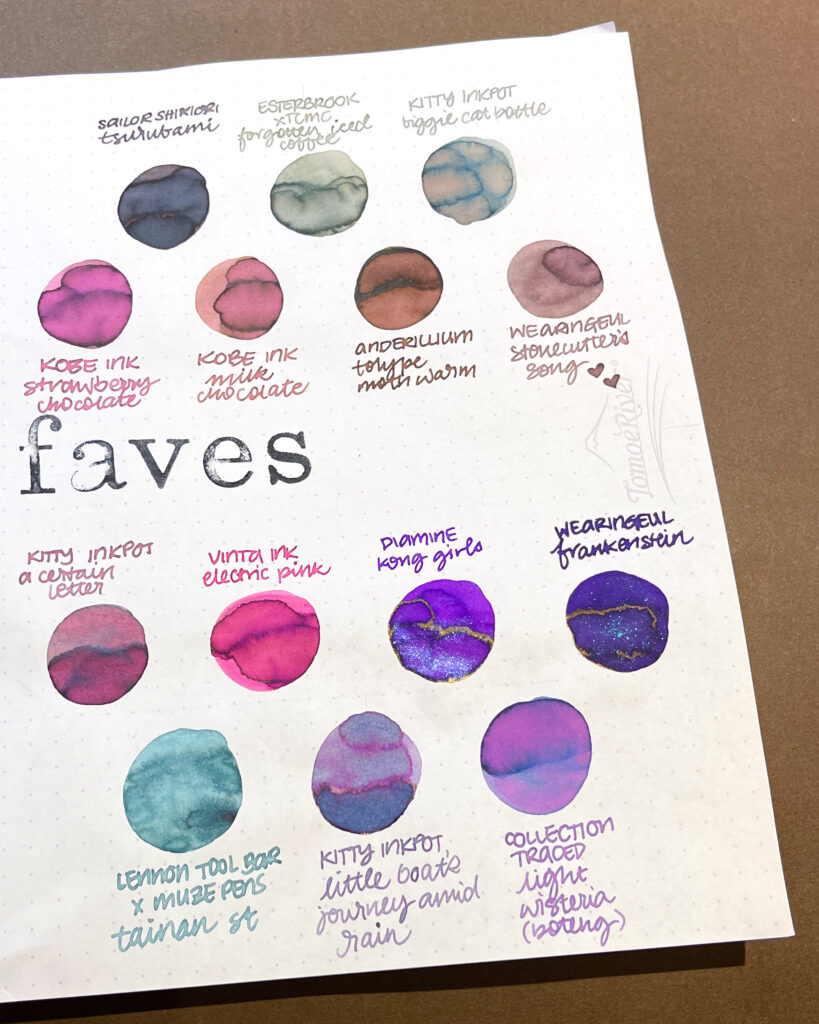 SAILOR SHIKIORI
tsurubami
ESTERBROOK
x TCMC
forgotten iced
coffee
KITTY INKPOT
biggie cat bottle
KOBE INK
strawberry
chocolate
KOBE INK
milk
chocolate
ANDERILLIUM
tolype
moth warm
WEARINGEUL
stonecutter's
song
TomoeRiver
faves
KITTY INKPOT
a certain
letter
VINTA INK
electric pink
DIAMINE
kong girls
WEARINGEUL
frankenstein
LENNON TOOL BAR
x MUZE PENS
tainan st
KITTY INKPOT
little boat's
journey amid
rain
COLLECTION
TRACED
light
wisteria
(boteng)